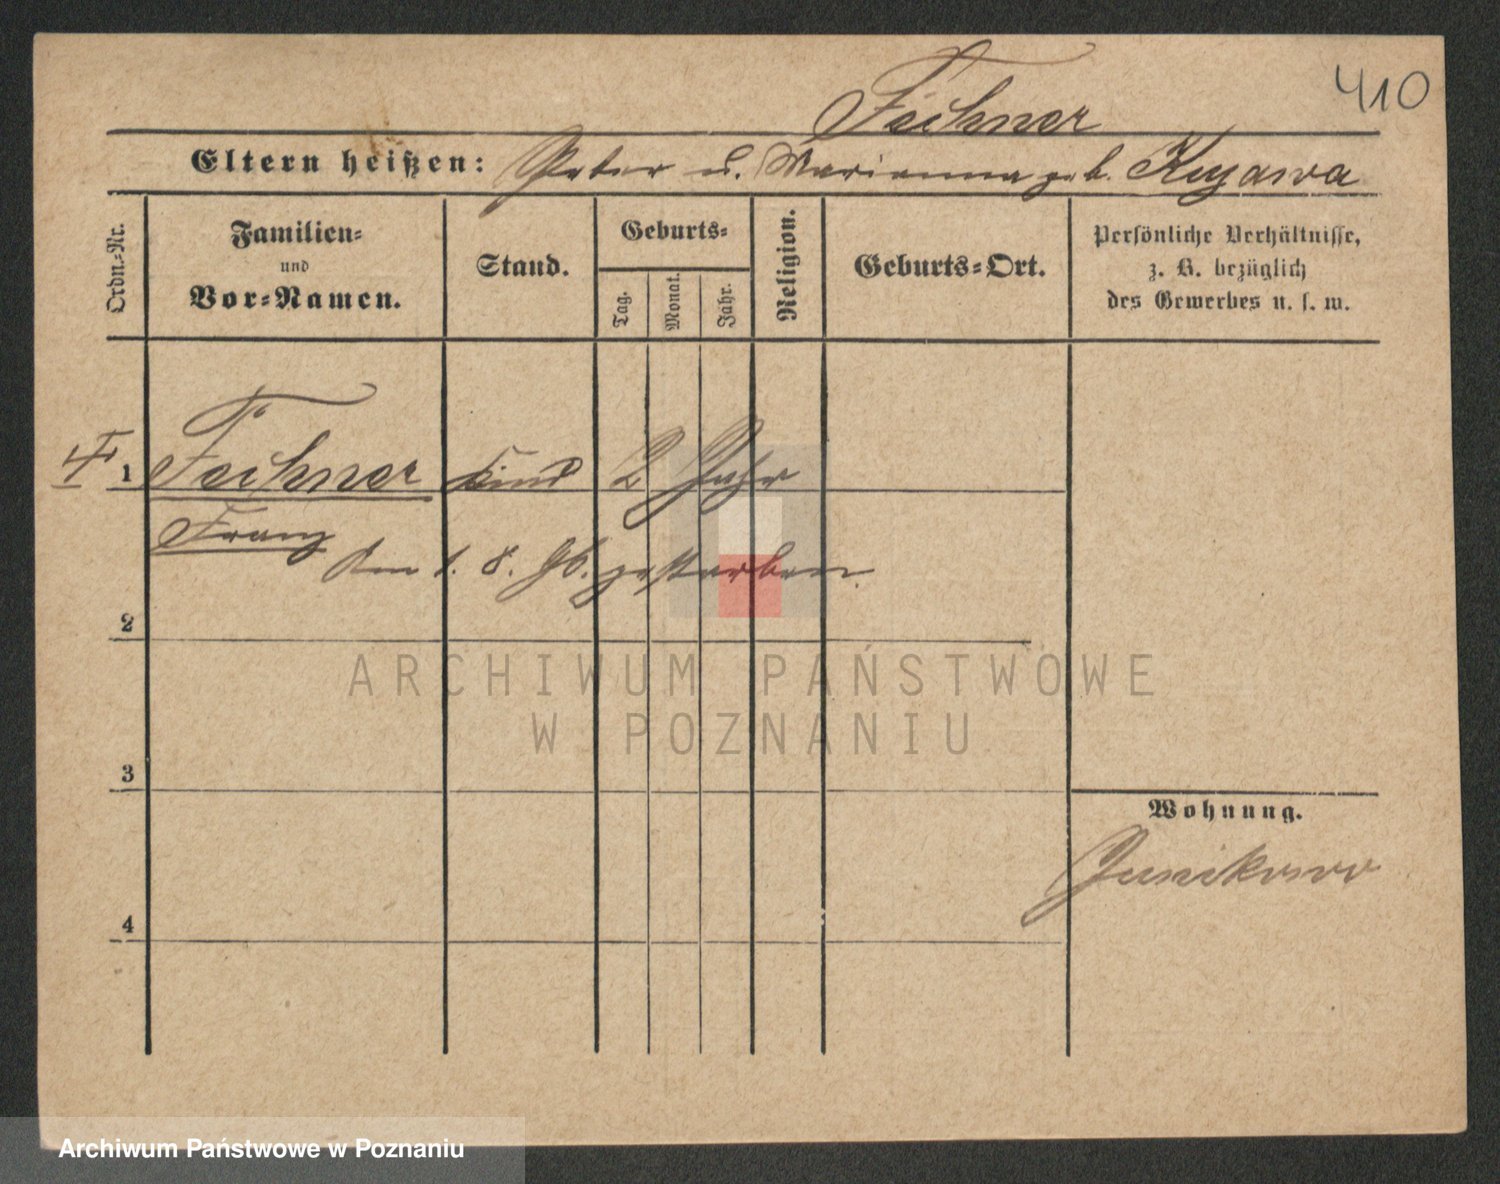 410
Fechner
Eltern heißen: Peter u. Marianna geb. Kujawa
Ordn.-Nr.
Familien-
und
Vor-Namen.
Stand.
Geburts-
Tag.
Monat.
Jahr.
Religion.
Geburts-Ort.
Persönliche Verhältnisse,
z. B. bezüglich
des Gewerbes u. s. w.
1 Fechner Kind 2 Jahr
Franz
den 1. 8. 96. gestorben.
2
ARCHIWUM PAŃSTWOWE
W POZNANIU
3
Wohnung.
Junikowo
4
Archiwum Państwowe w Poznaniu